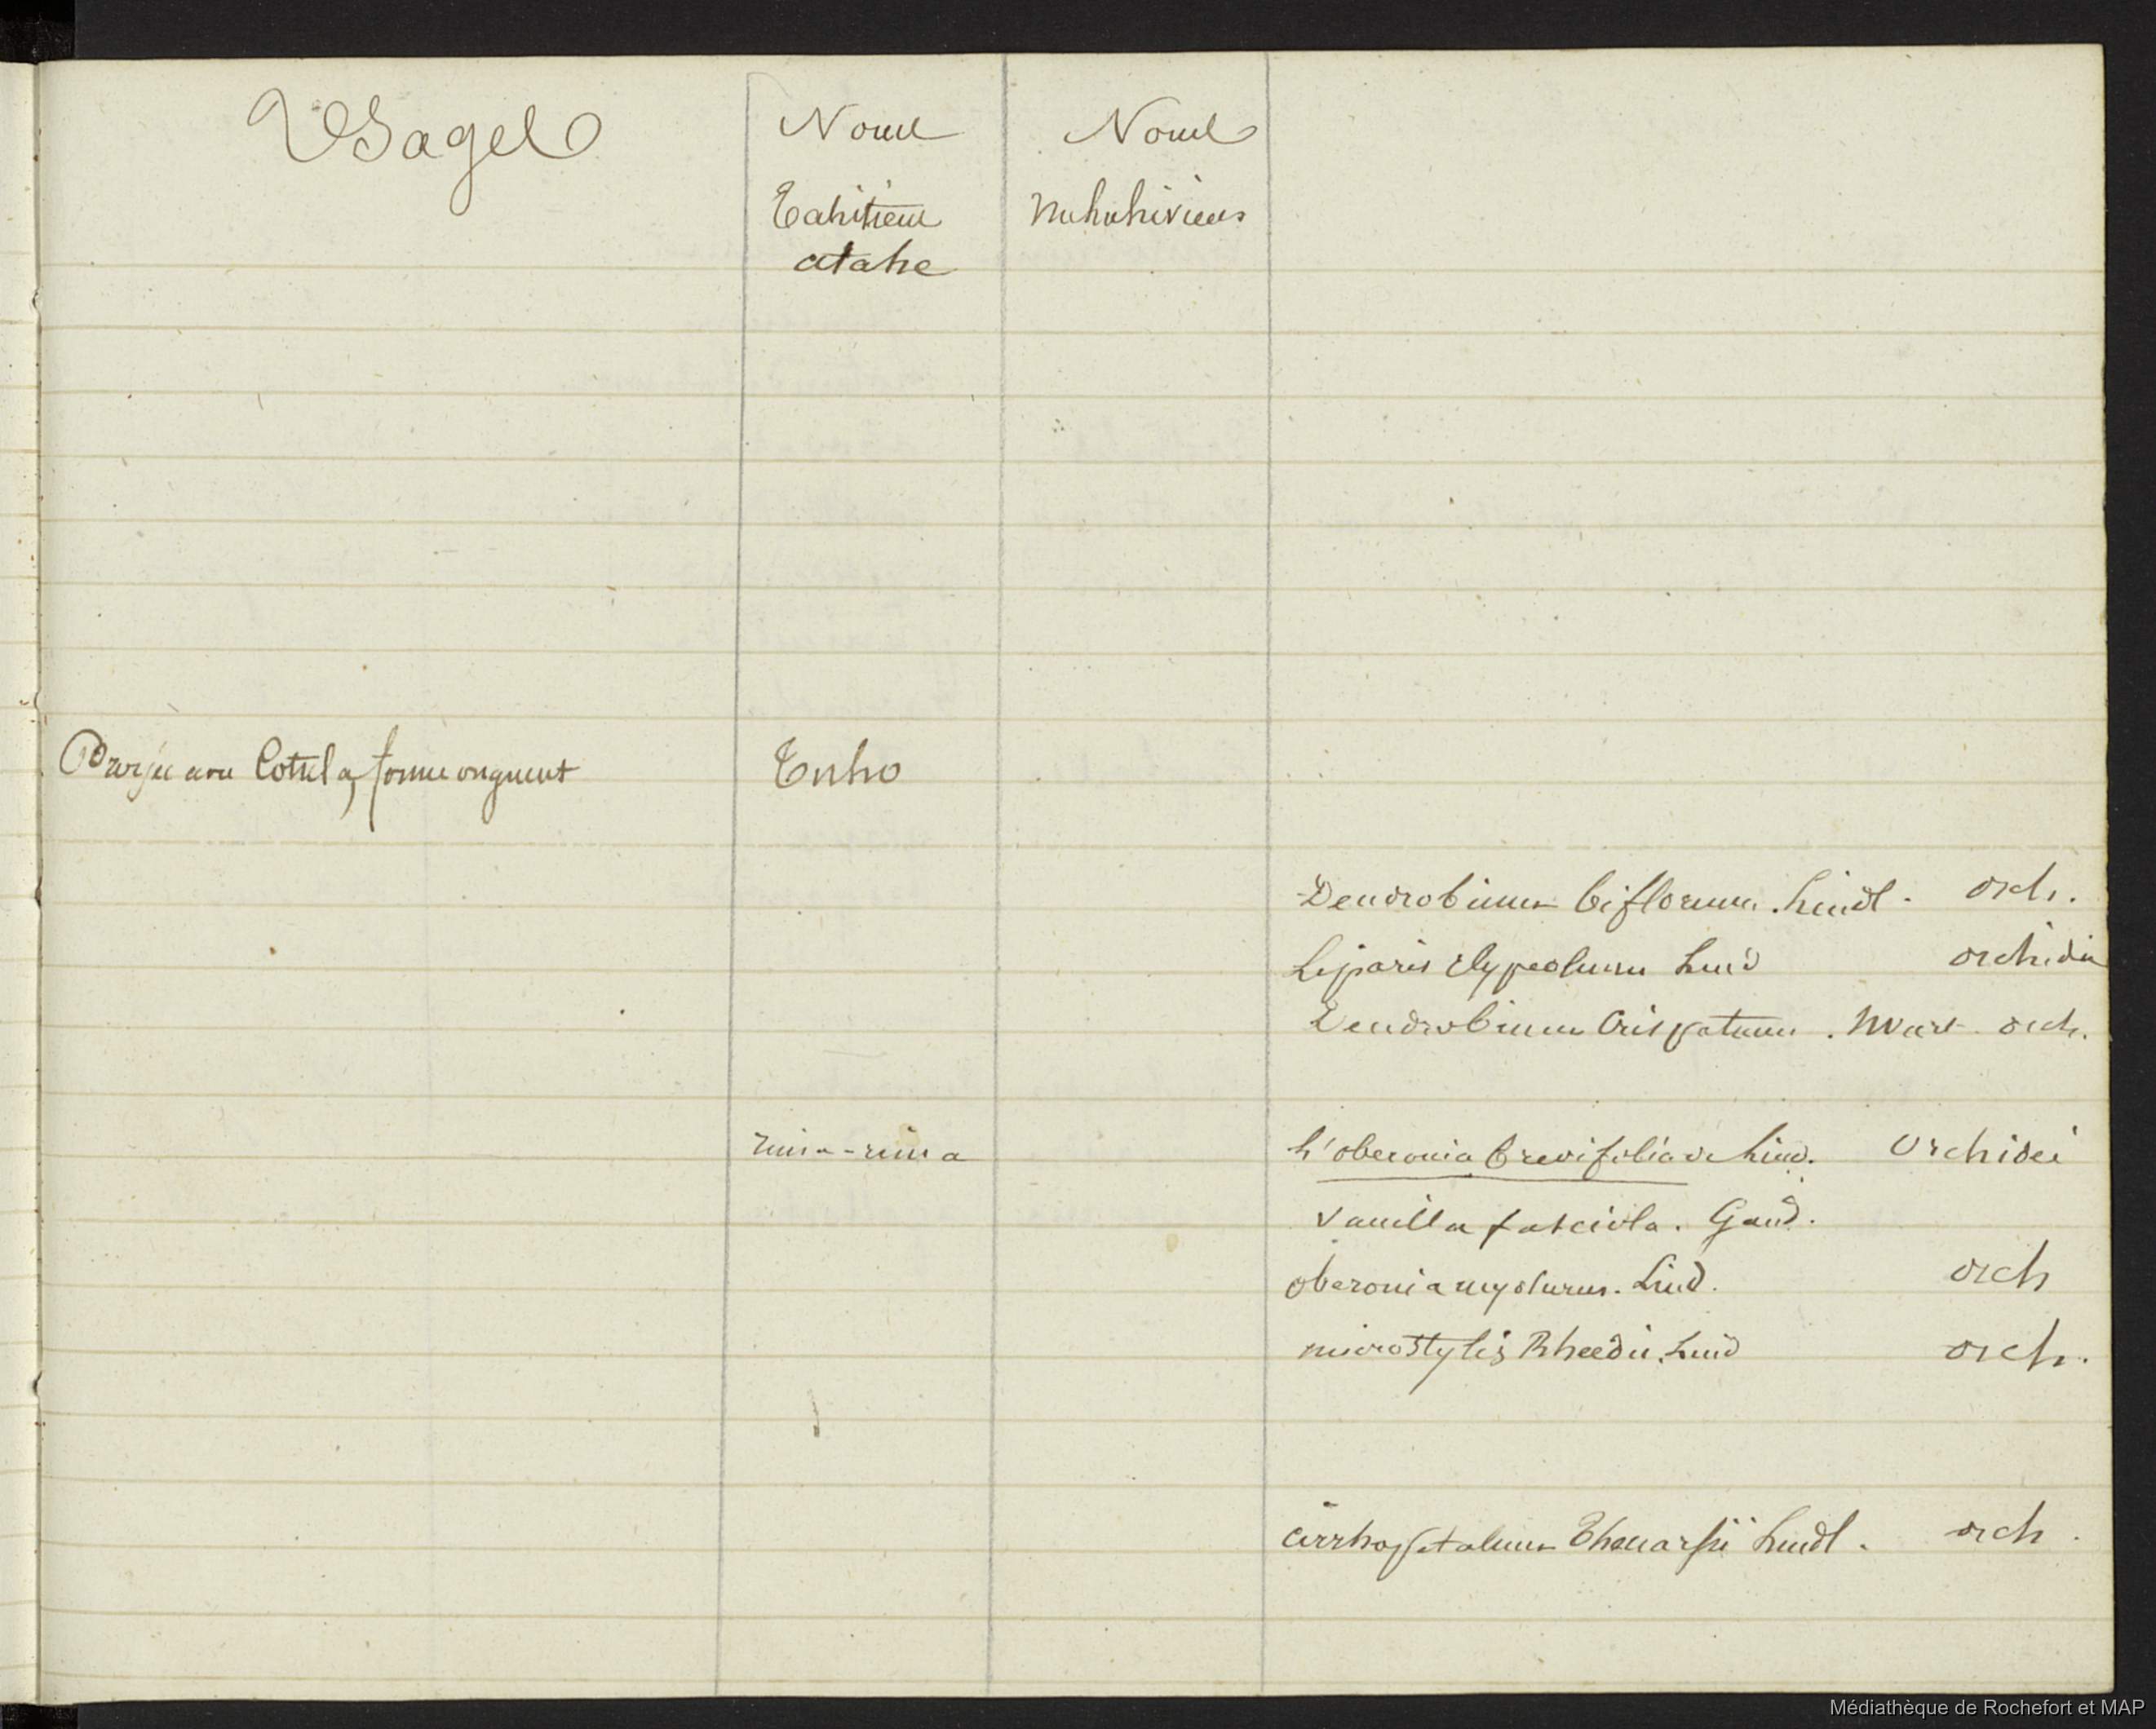 Usages
Noms
Noms
Tahitiens
Nuhuhiviens
atahe
avec Cotula, forme onguent
Tuho
Dendrobium biflorum. Lindl. orch.
Liparis Clypeolum Lind orchidei
Dendrobium Crispatum. Swar orch.
rima-rima
L'oberonia brevifolia de Lind. Orchidei
Vanilla fasciola. Gaud.
oberonia myosurus. Lind. orch
microstylis Rheedii. Lind orch.
Cirrhopetalum Thouarsii Lindl. orch.
Médiathèque de Rochefort et MAP